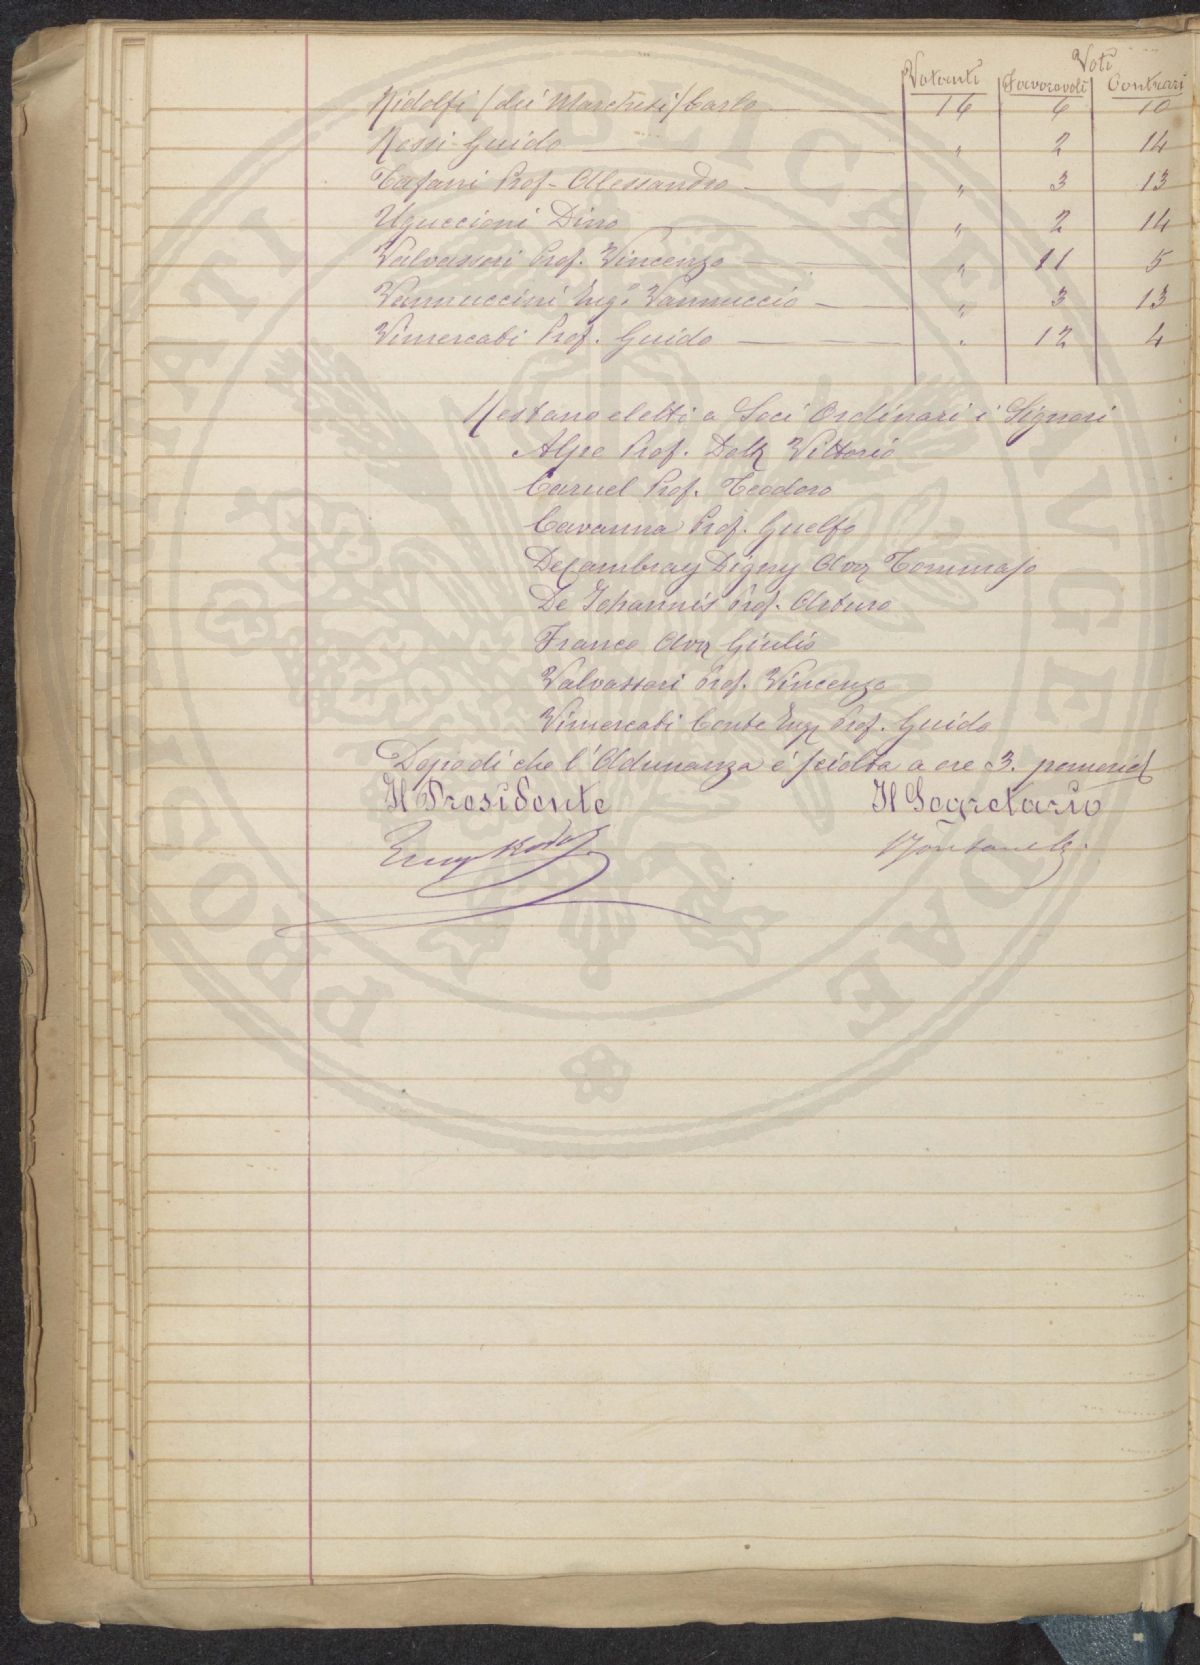 Voti
Votanti Favorevoli Contrari
Ridolfi (dei Marchesi) Carlo 16 6 10
Rossi Guido " 2 14
Tafani Prof. Alessandro " 3 13
Uguccioni Dino " 2 14
Valvassori Prof. Vincenzo " 11 5
Vannuccini Ing.e Vannuccio " 3 13
Vimercati Prof. Guido " 12 4
Restano eletti a Soci Ordinari i Signori
Alpe Prof. Dott Vittorio
Caruel Prof. Teodoro
Cavanna Prof. Guelfo
De Cambray Digny Avv Tommaso
De Johannis Prof. Arturo
Franco Avv Giulio
Valvassori Prof. Vincenzo
Vimercati Conte Ing Prof. Guido
Dopodi che l'Adunanza é sciolta a ore 3. pomerid
Il Presidente Il Segretario
PROSPERITATI PUBLICAE AUGENDAE